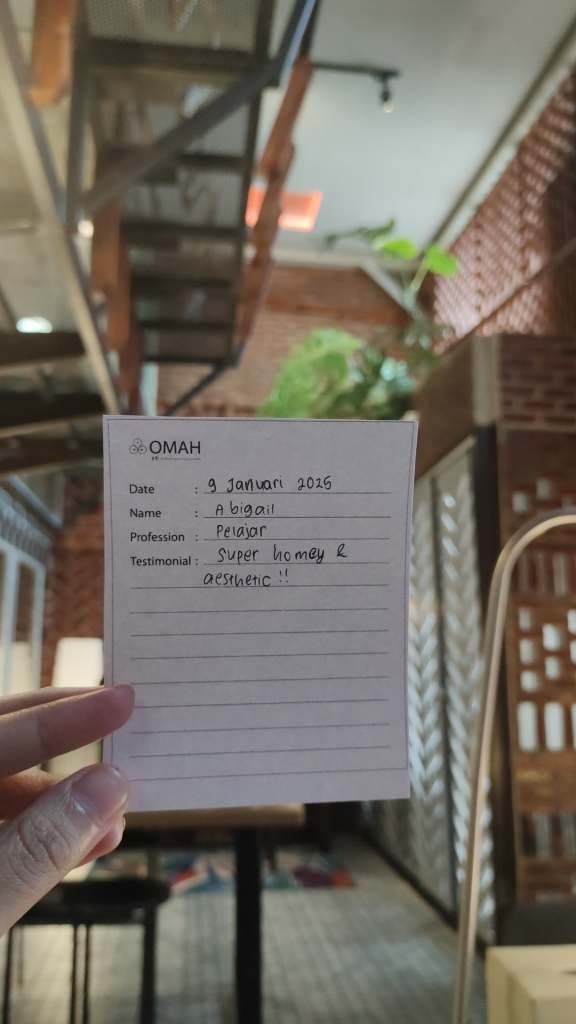 OMAH
Date : 9 Januari 2025
Name : Abigail
Profession : Pelajar
Testimonial : Super homey &
aesthetic !!